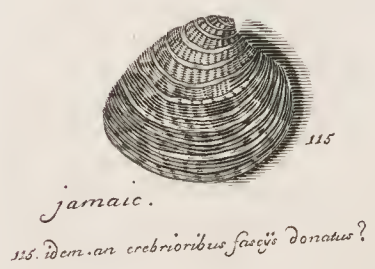 115
jamaic.
115. idem. an crebrioribus fascijs donatus?